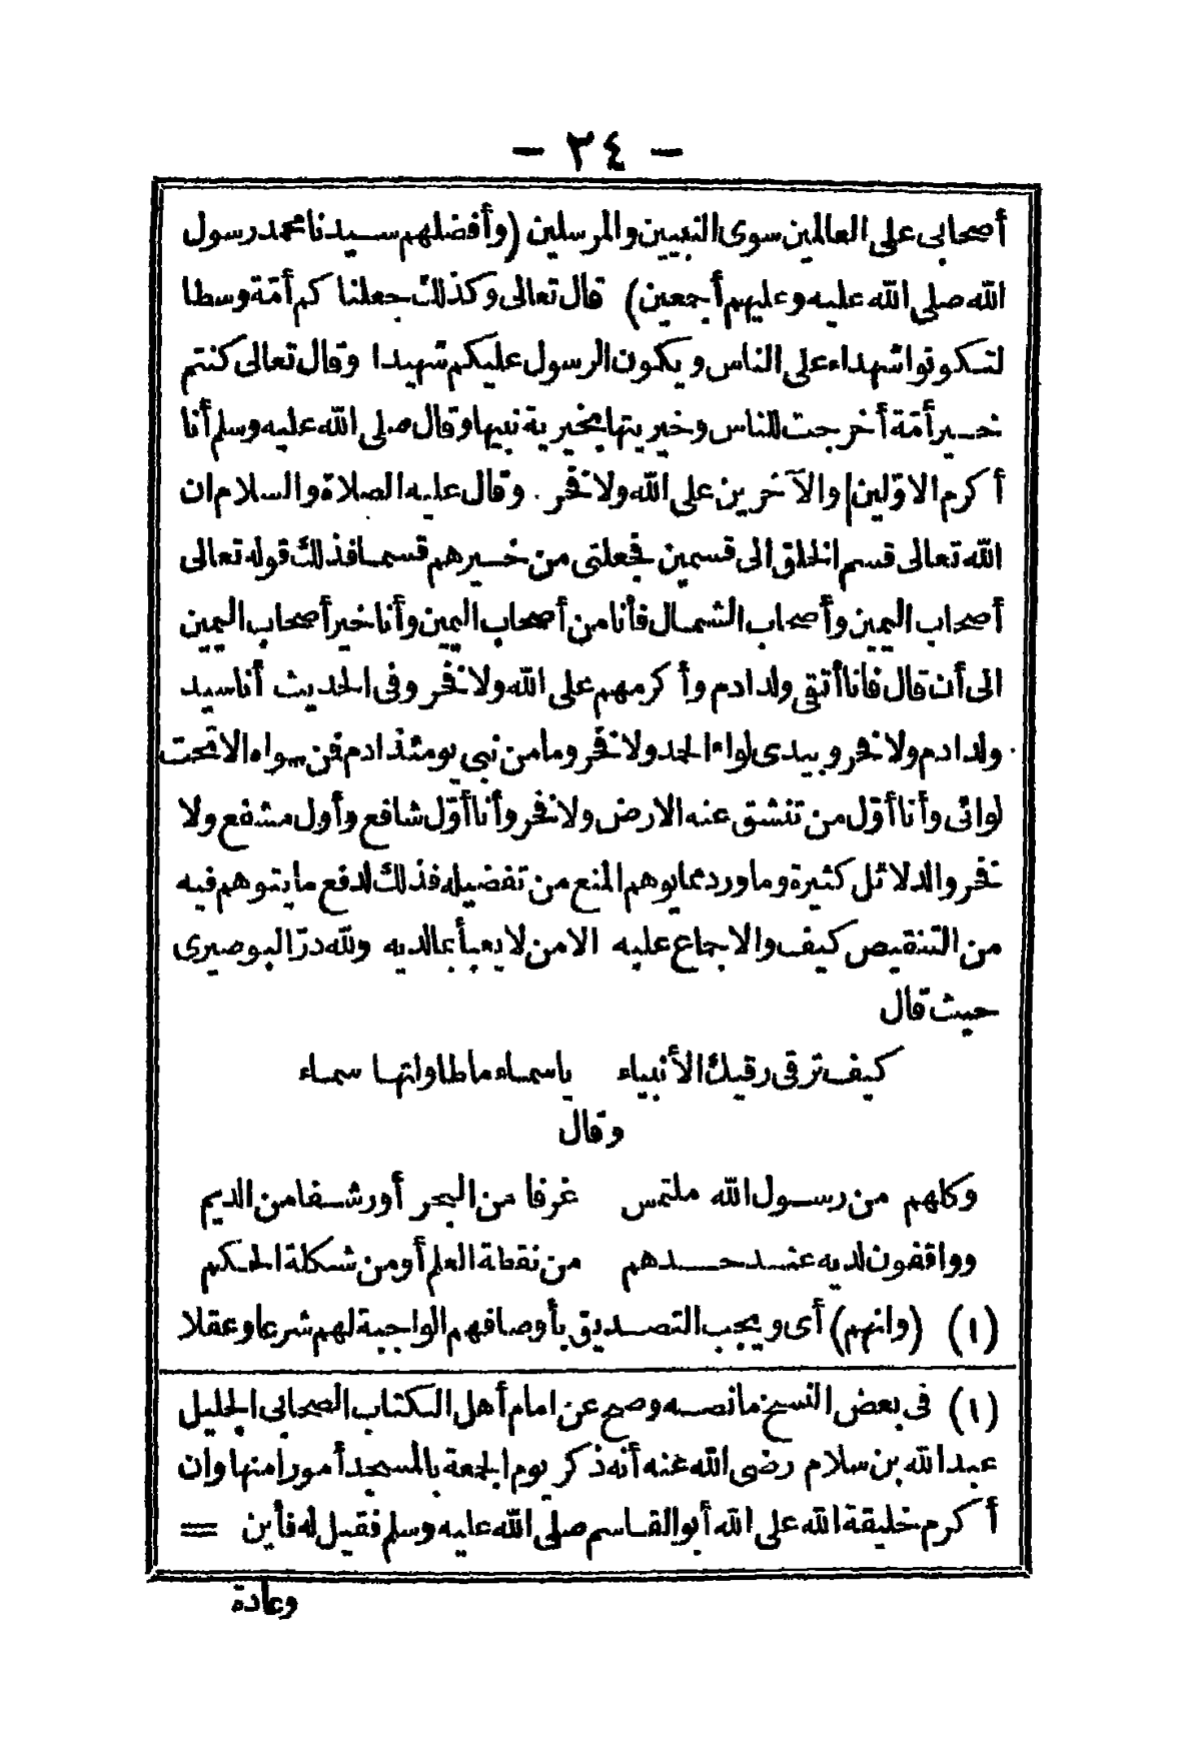 - ٣٤ -
أصحابى على العالمين سوى النبيين والمرسلين (وأفضلهم سيدنا محمد رسول
الله صلى الله عليه وعليهم أجمعين) قال تعالى وكذلك جعلناكم أمّة وسطا
لتكونوا شهداء على الناس ويكون الرسول عليكم شهيدا وقال تعالى كنتم
خير أمّة أخرجت للناس وخيريتها بخيرية نبيها وقال صلى الله عليه وسلم أنا
أكرم الاوّلين والآخرين على الله ولا فخر. وقال عليه الصلاة والسلام ان
الله تعالى قسم الخلق الى قسمين فجعلنى من خيرهم قسما فذلك قوله تعالى
أصحاب اليمين وأصحاب الشمال فأنا من أصحاب اليمين وأنا خير أصحاب اليمين
الى أن قال فانا أتقى ولد ادم وأكرمهم على الله ولا فخر وفى الحديث أنا سيد
ولد ادم ولا فخر وبيدى لواء الحمد ولا فخر وما من نبي يومئذ ادم فمن سواه الا تحت
لوائى وأنا أوّل من تنشق عنه الارض ولا فخر وأنا أوّل شافع وأول مشفع ولا
فخر والدلائل كثيرة وما ورد مما يوهم المنع من تفضيله فذلك لدفع ما يتوهم فيه
من التنقيص كيف والاجماع عليه الا من لا يعبأ بمالديه ولله درّ البوصيرى
حيث قال
كيف ترقى رقيك الأنبياء ياسماء ما طاولتها سماء
وقال
وكلهم من رسول الله ملتمس غرفا من البحر أو رشفا من الديم
وواقفون لديه عند حدهم من نقطة العلم أو من شكلة الحكم
(١) (وانهم) أى ويجب التصديق بأوصافهم الواجبة لهم شرعا وعقلا
(١) فى بعض النسخ ما نصه وصح عن امام أهل الكتاب الصحابى الجليل
عبد الله بن سلام رضى الله عنه أنه ذكر يوم الجمعة بالمسجد أمورا منها وان
أكرم خليقة الله على الله أبو القاسم صلى الله عليه وسلم فقيل له فأين =
وعادة